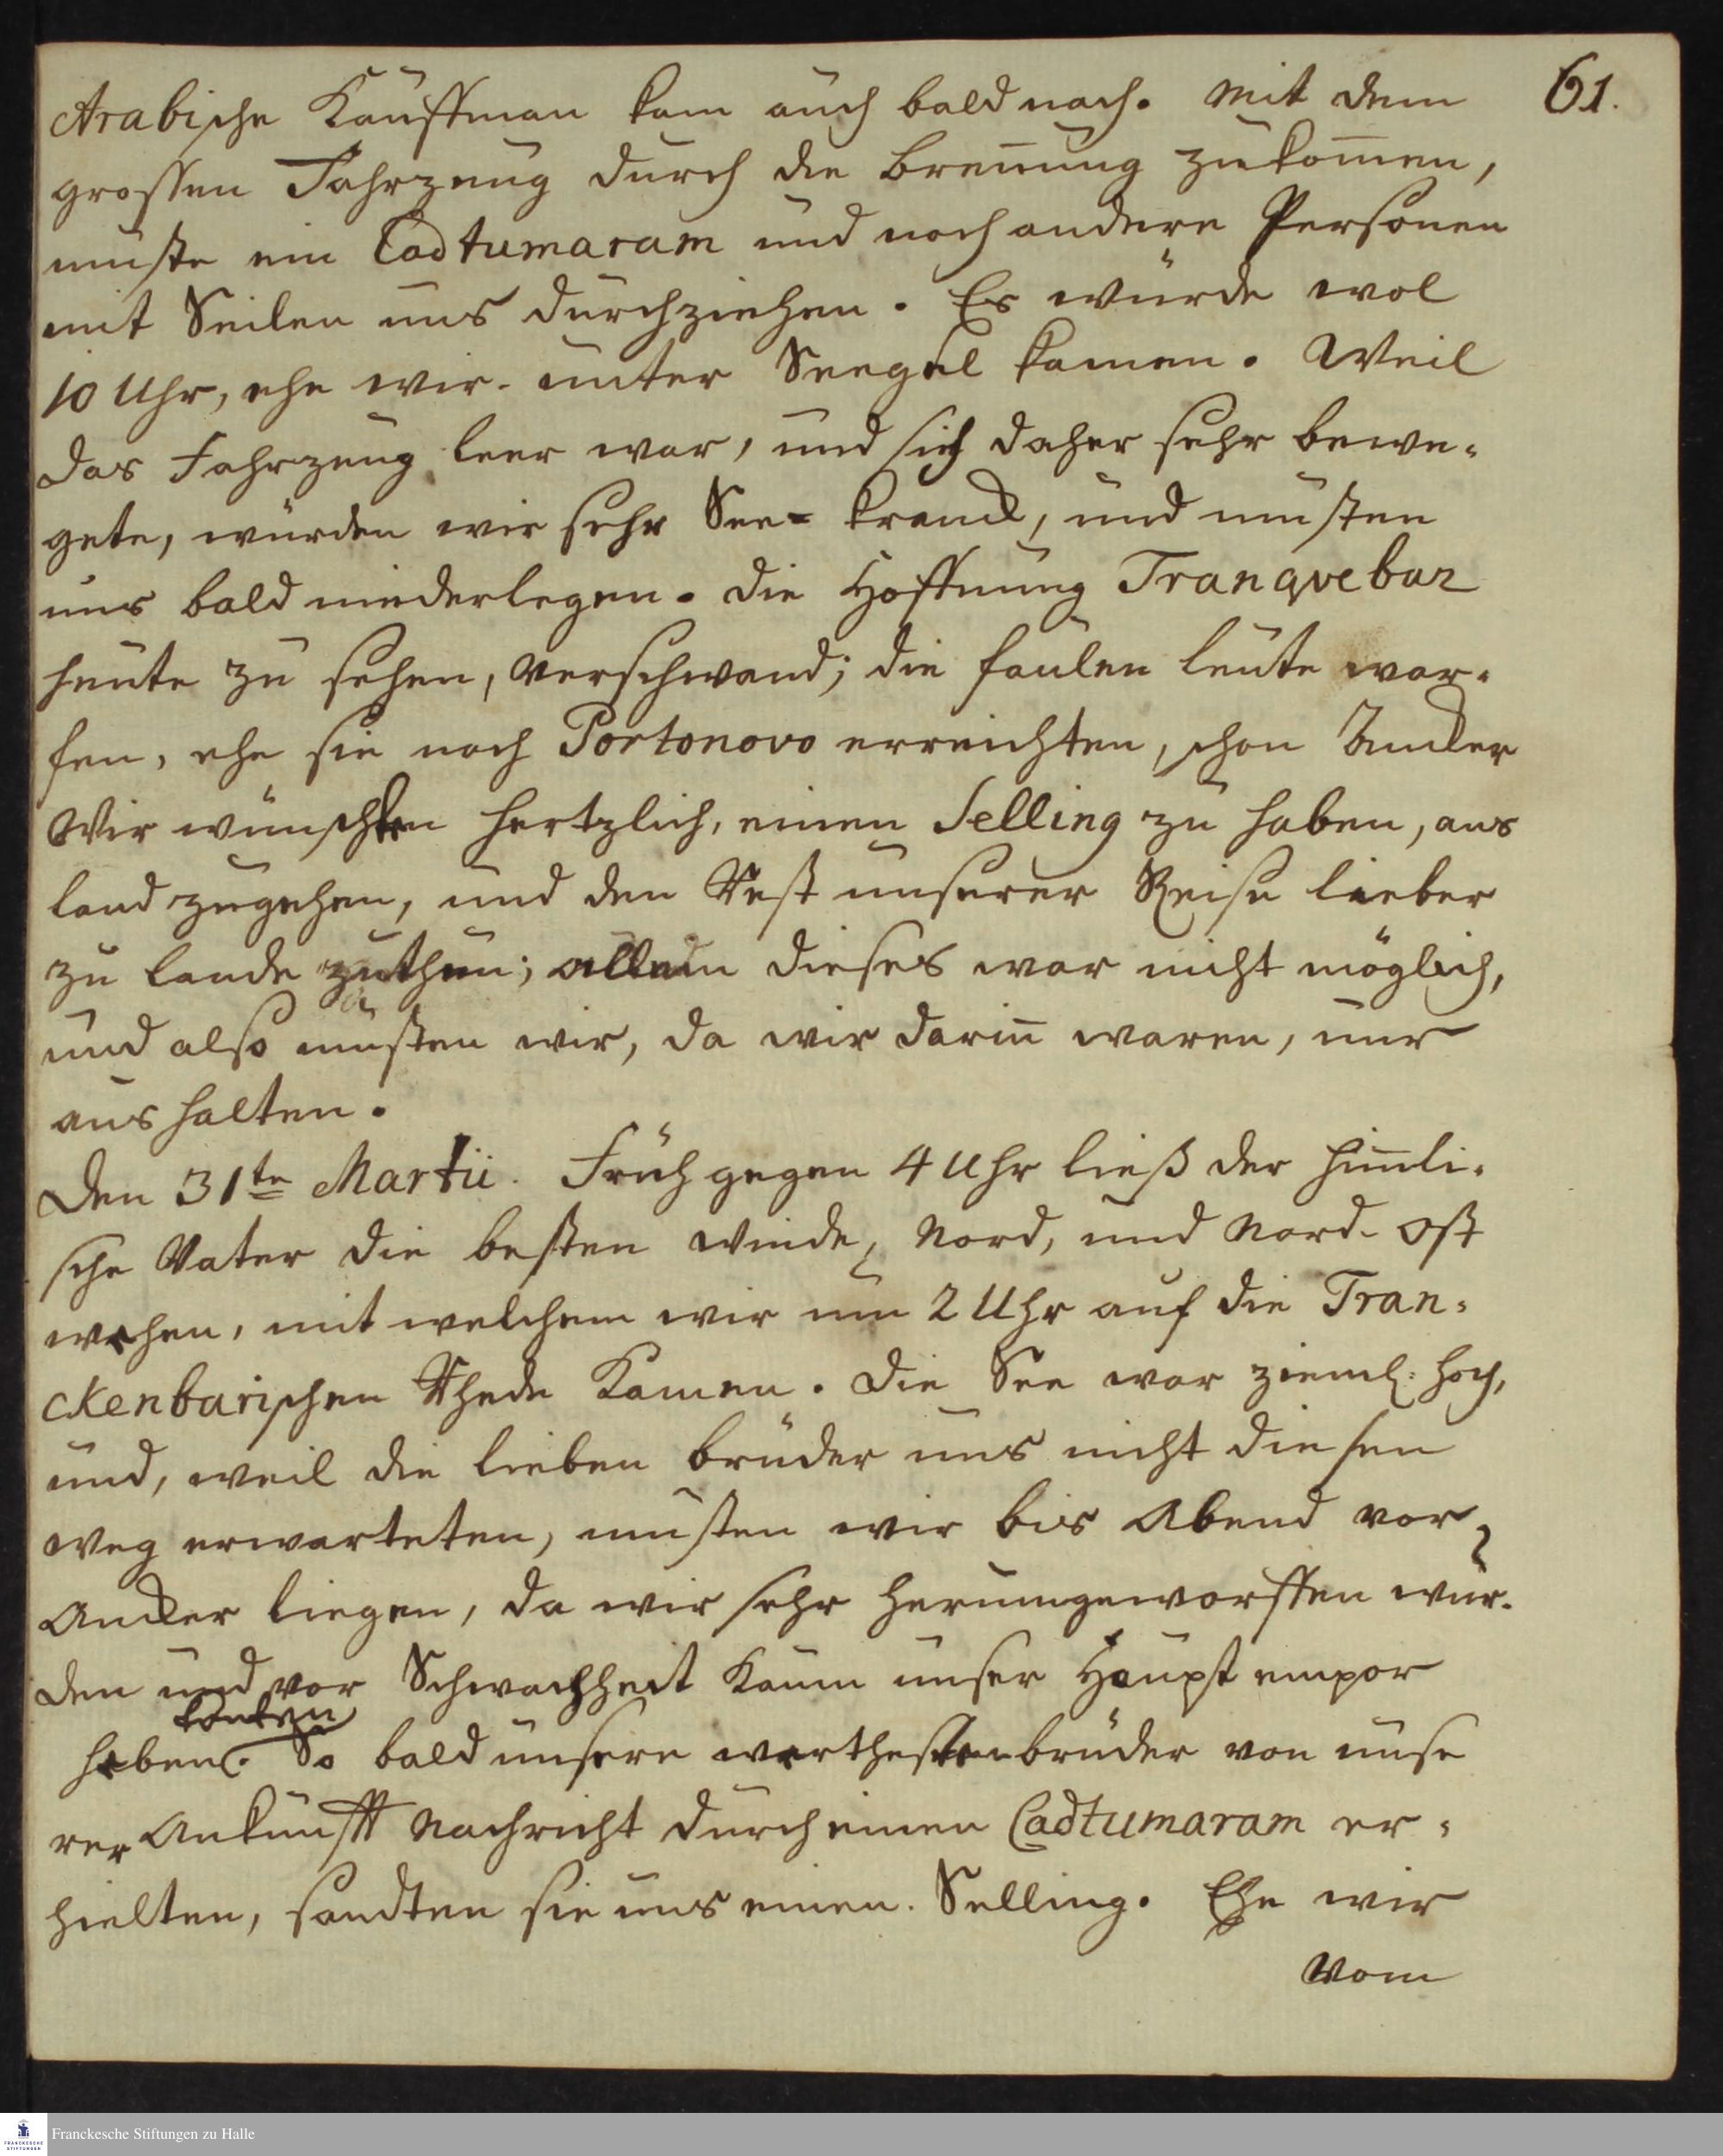 61.
Arabische Kauffman kam auch bald nach. Mit dem
grossen Fahrzeug durch die Breñung zukom̄en,
muste ein Cadtumaram und noch andere Personen
mit Seilen uns durchziehen. Es würde wol
10 Uhr, ehe wir unter Seegel kamen. Weil
das Fahrzeug leer war, und sich daher sehr bewe-
gete, würden wir sehr See-kranck, und musten
uns bald niederlegen. Die Hoffnung Tranqvebar
heute zu sehen, verschwand; die faulen leute war-
fen, ehe sie noch Portonovo erreichten, schon Ancker
Wir wünschten hertzlich, einen Selling zu haben, ans
land zugehen, und den Rest unserer Reise lieber
zu lande zuthun; allein dieses war nicht möglich,
und also musten wir, da wir dariñ waren, nur
aushalten.
Den 31te Martii. Früh gegen 4 Uhr ließ der him̄li-
sche Vater die besten Winde, Nord, und Nord-Ost
wehen, mit welchem wir um 2 Uhr auf die Tran-
ckenbarischen Rhede kamen. Die See war zieml: hoch,
und, weil die lieben brüder uns nicht diesen
Weg erwarteten, musten wir bis Abend vor
Ancker liegen, da wir sehr herumgeworffen wur-
den und vor Schwachheit kaum unser Haupt empor
heben konten. So bald unsere werthesten brüder von unse
rer Ankunfft Nachricht durch einen Cadtumaram er-
hielten, sandten sie uns einen Selling. Ehe wir
vom
Franckesche Stiftungen zu Halle